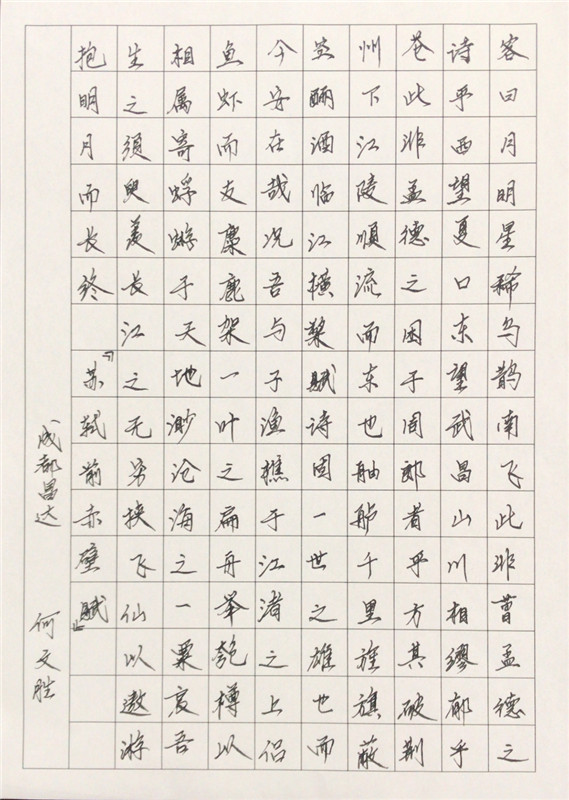 客曰月明星稀乌鹊南飞此非曹孟德之
诗乎西望夏口东望武昌山川相缪郁乎
苍此非孟德之困于周郎者乎方其破荆
州下江陵顺流而东也舳舻千里旌旗蔽
空酾酒临江横槊赋诗固一世之雄也而
今安在哉况吾与子渔樵于江渚之上侣
鱼虾而友麋鹿架一叶之扁舟举匏樽以
相属寄蜉蝣于天地渺沧海之一粟哀吾
生之须臾羡长江之无穷挟飞仙以遨游
抱明月而长终 『苏轼前赤壁赋』
成都昌达 何文胜